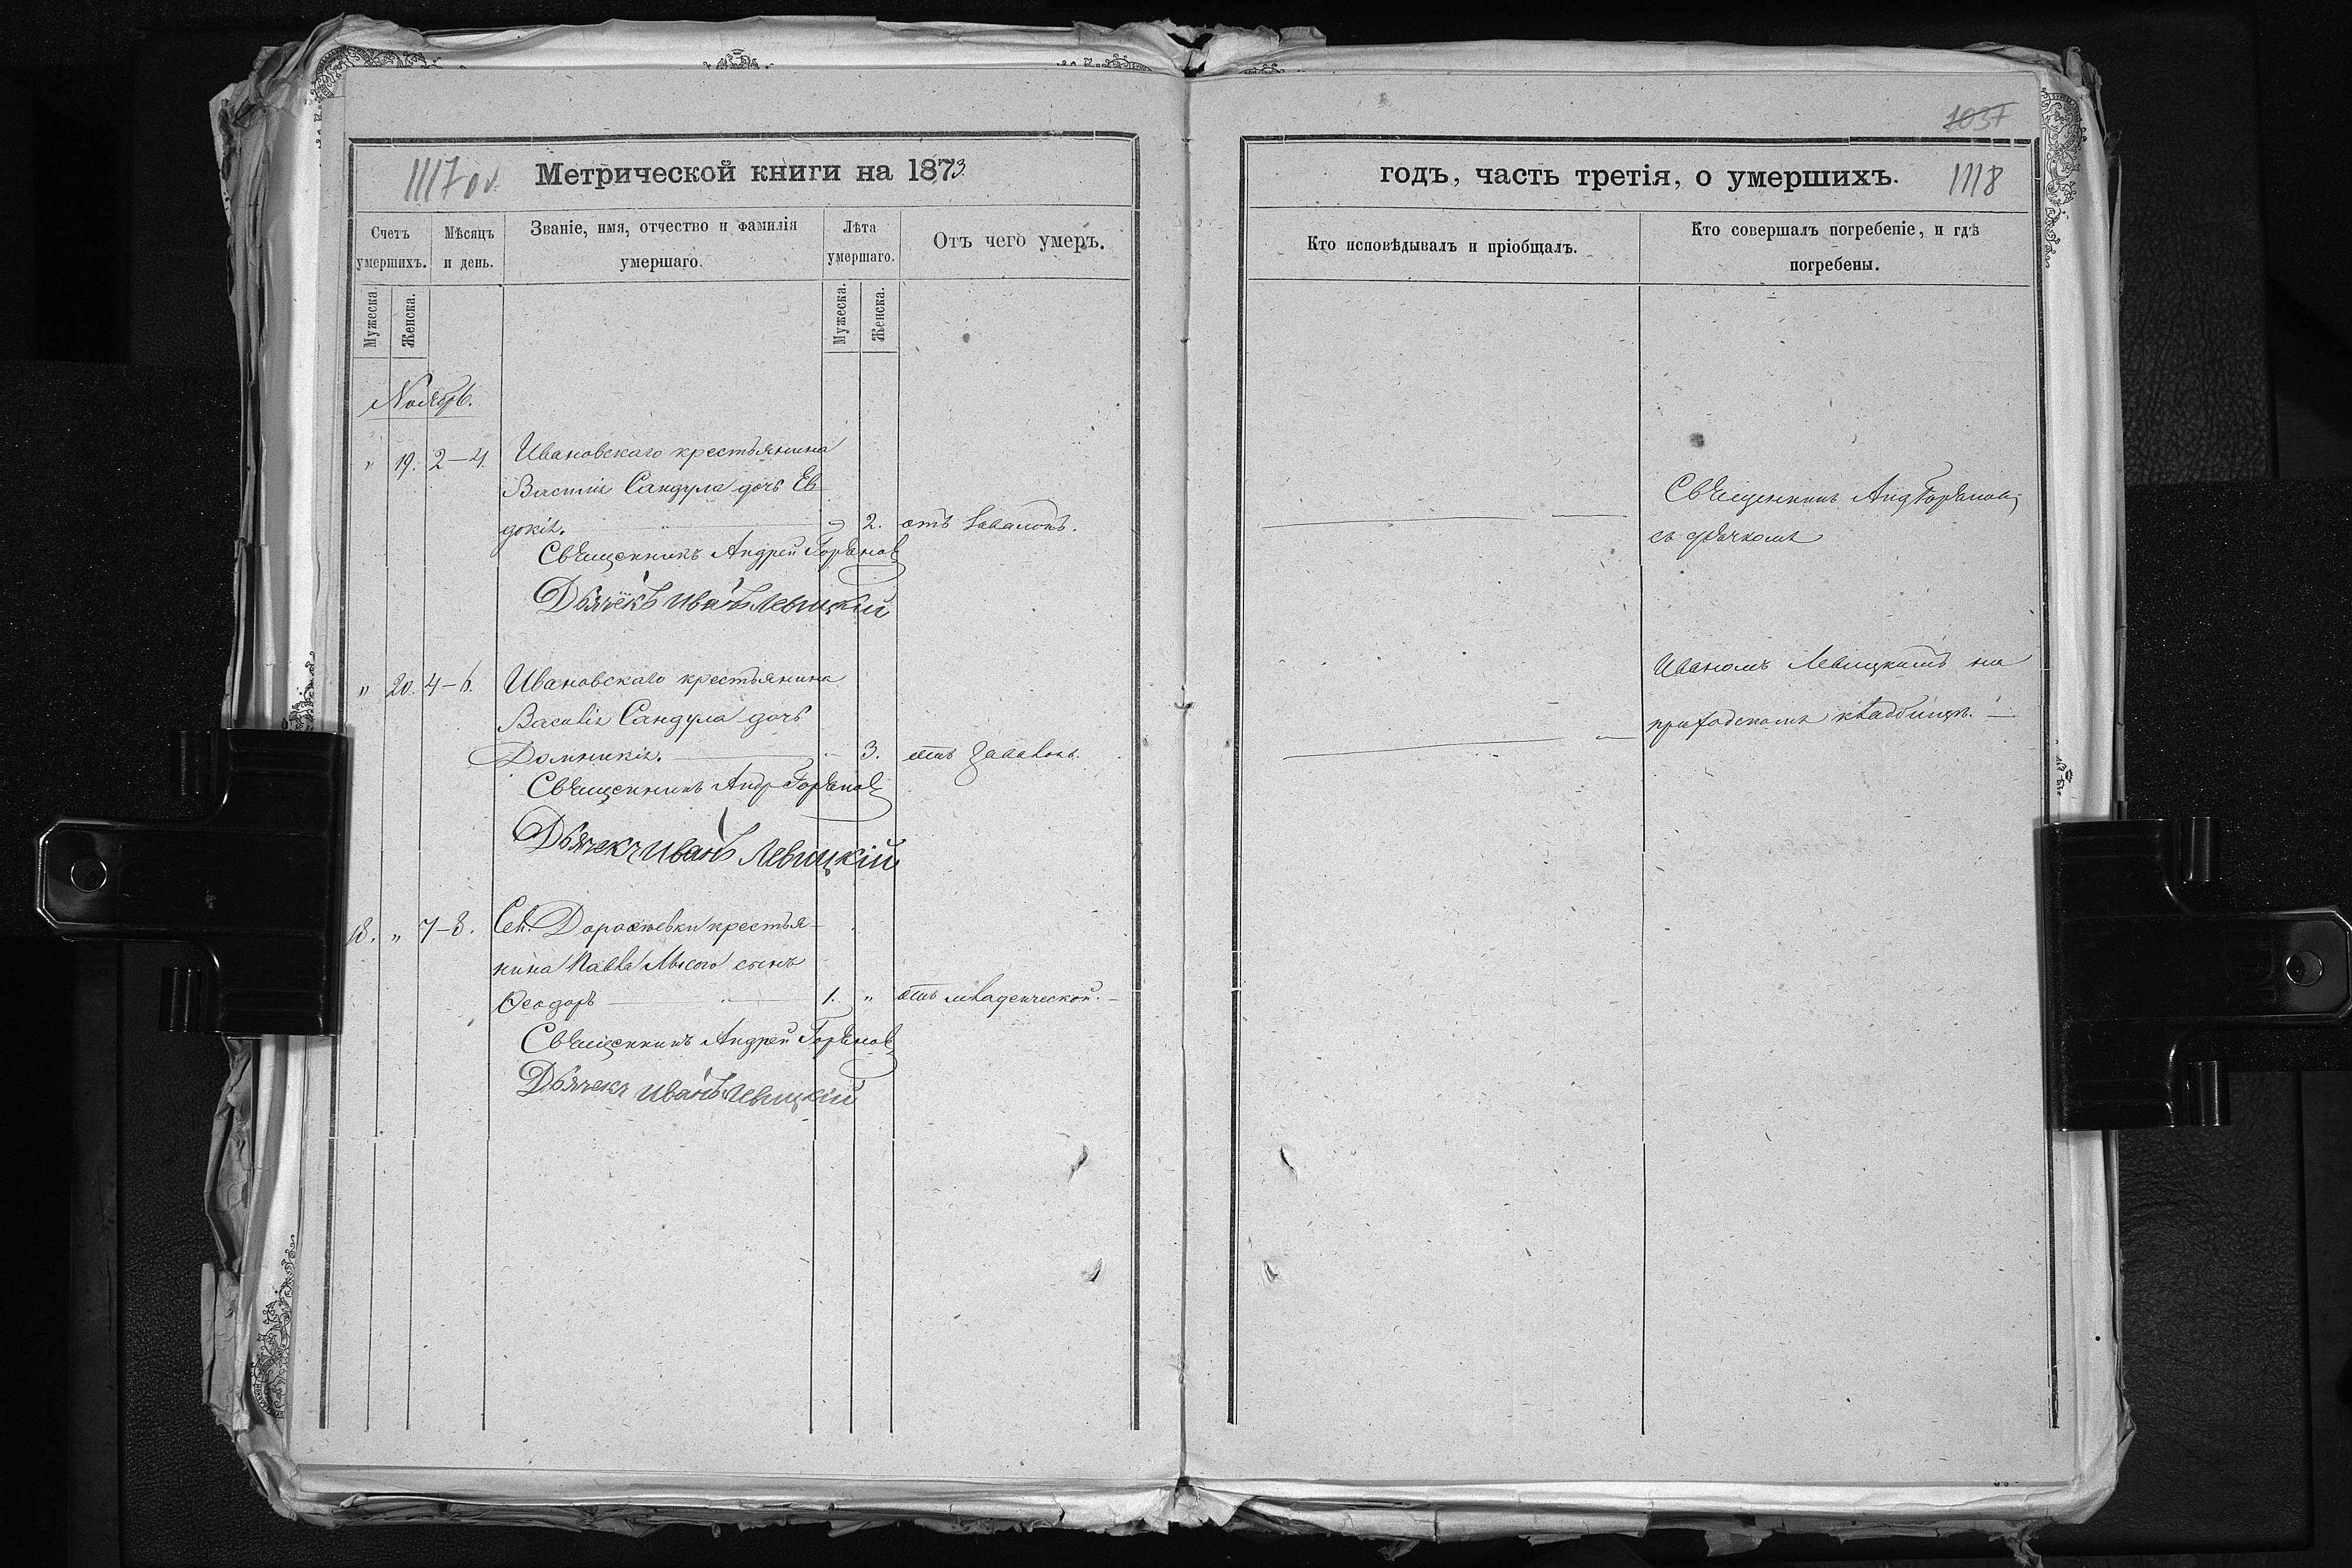 1117 об.
Метрической книги на 1873
Счетъ умершихъ.
Мѣсяцъ и день.
Званіе, имя, отчество и фамилія умершаго.
Лѣта умершаго.
Отъ чего умеръ.
Мужеска.
Женска.
Мужеска.
Женска.
Ноябрь.
" 19. 2–4. Ивановскаго крестьянина
Василія Сандула дочь Ев
докія. " 2. отъ
Священникъ Андрей
Дьячекъ Иванъ Левицкій
" 20. 4–6. Ивановскаго крестьянина
Василія Сандула дочь
Домникія. 3. отъ
Священникъ Андр
Дьячекъ Иванъ Левицкій
18. " 7–8. Сел. Доросževки крестья-
нина Павла Лысого сынъ
Ѳеодоръ 1. " отъ младенческой.
Священникъ Андрей
Дьячекъ Иванъ Левицкій
1037
годъ, часть третія, о умершихъ.
1118
Кто исповѣдывалъ и пріобщалъ.
Кто совершалъ погребеніе, и гдѣ погребены.
Священникъ Анд
съ дьячкомъ
Иваномъ Левицкимъ на
приходскомъ кладбищѣ.